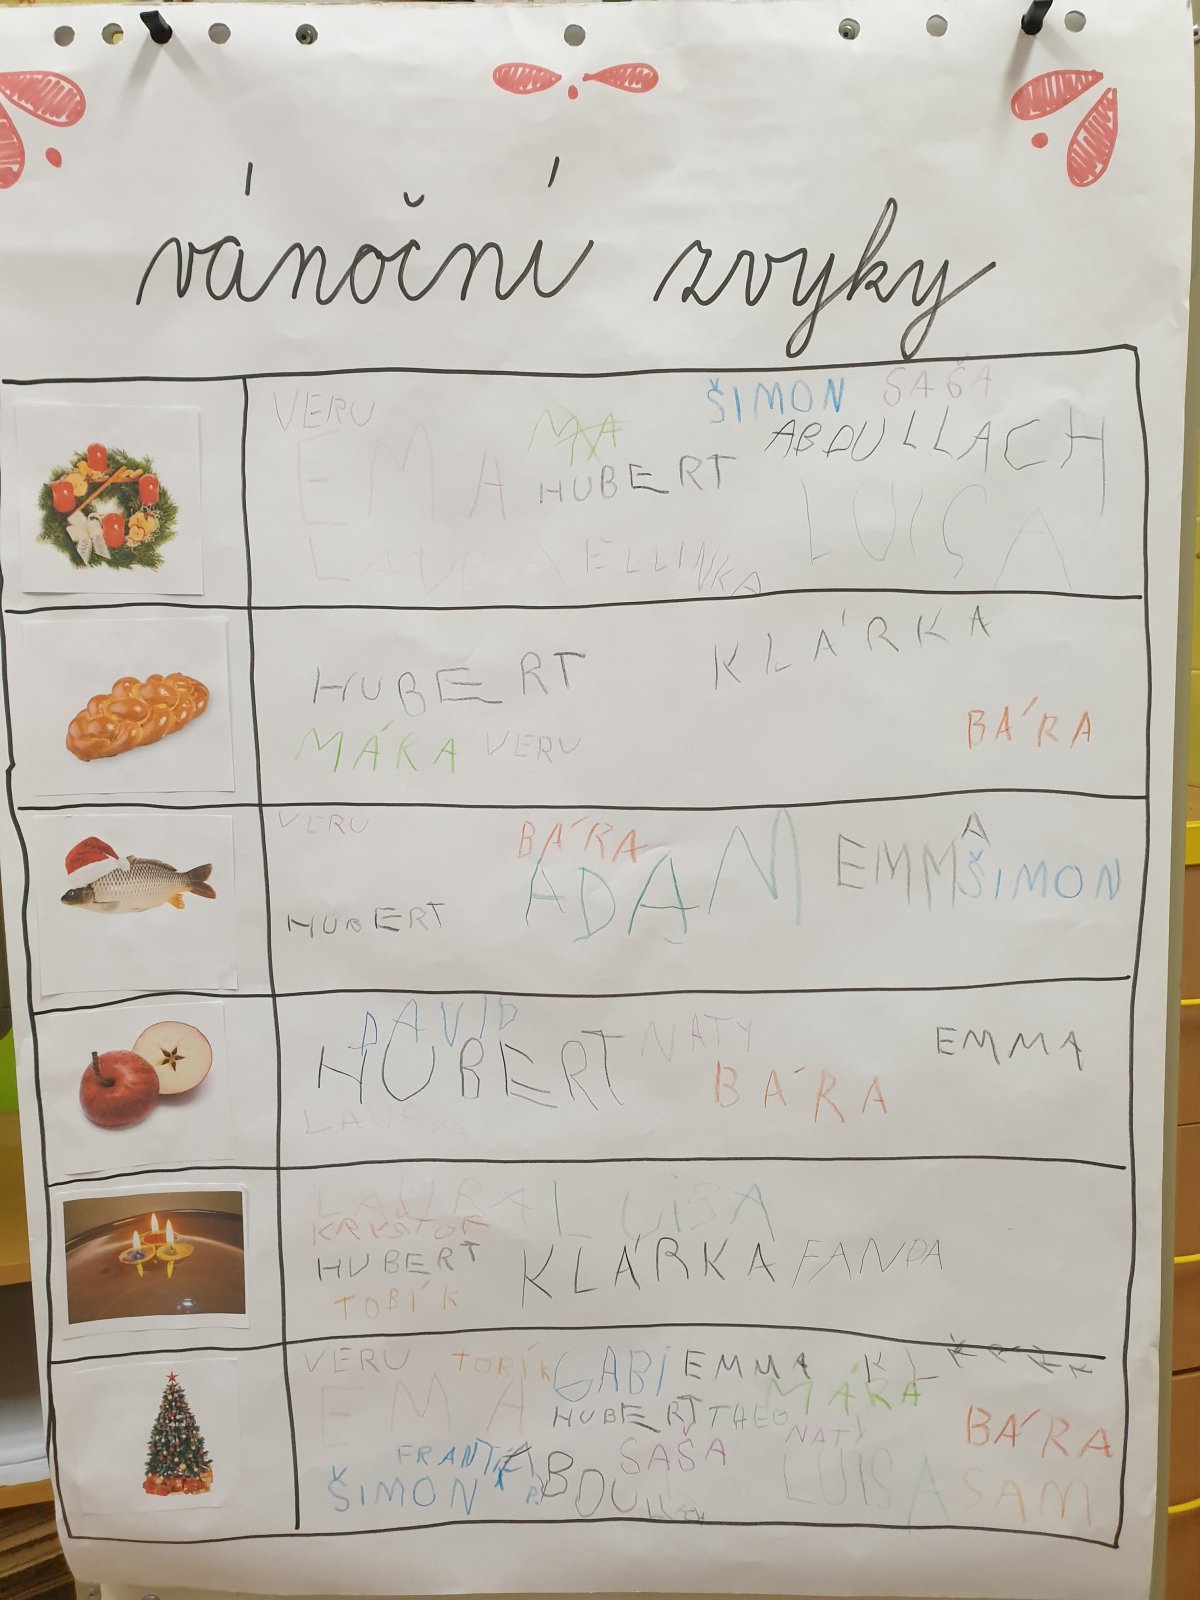 vánoční zvyky
VERU ŠIMON SAŠA
EMA HUBERT ABDULLACH
LAURA ELLINKA LUISA
HUBERT KLÁRKA
MÁRA VERU BÁRA
VERU BÁRA ADAM EMMA ŠIMON
HUBERT
DAVID NATY EMMA
HUBERT BÁRA
LAURA
LAURA LUISA
KRYŠTOF
HUBERT KLÁRKA FANDA
TOBÍK
VERU TOBÍK GABI EMMA
EMA HUBERT THEO MÁRA
NATY BÁRA
SAŠA
ŠIMON ABDULLACH LUISA SAM